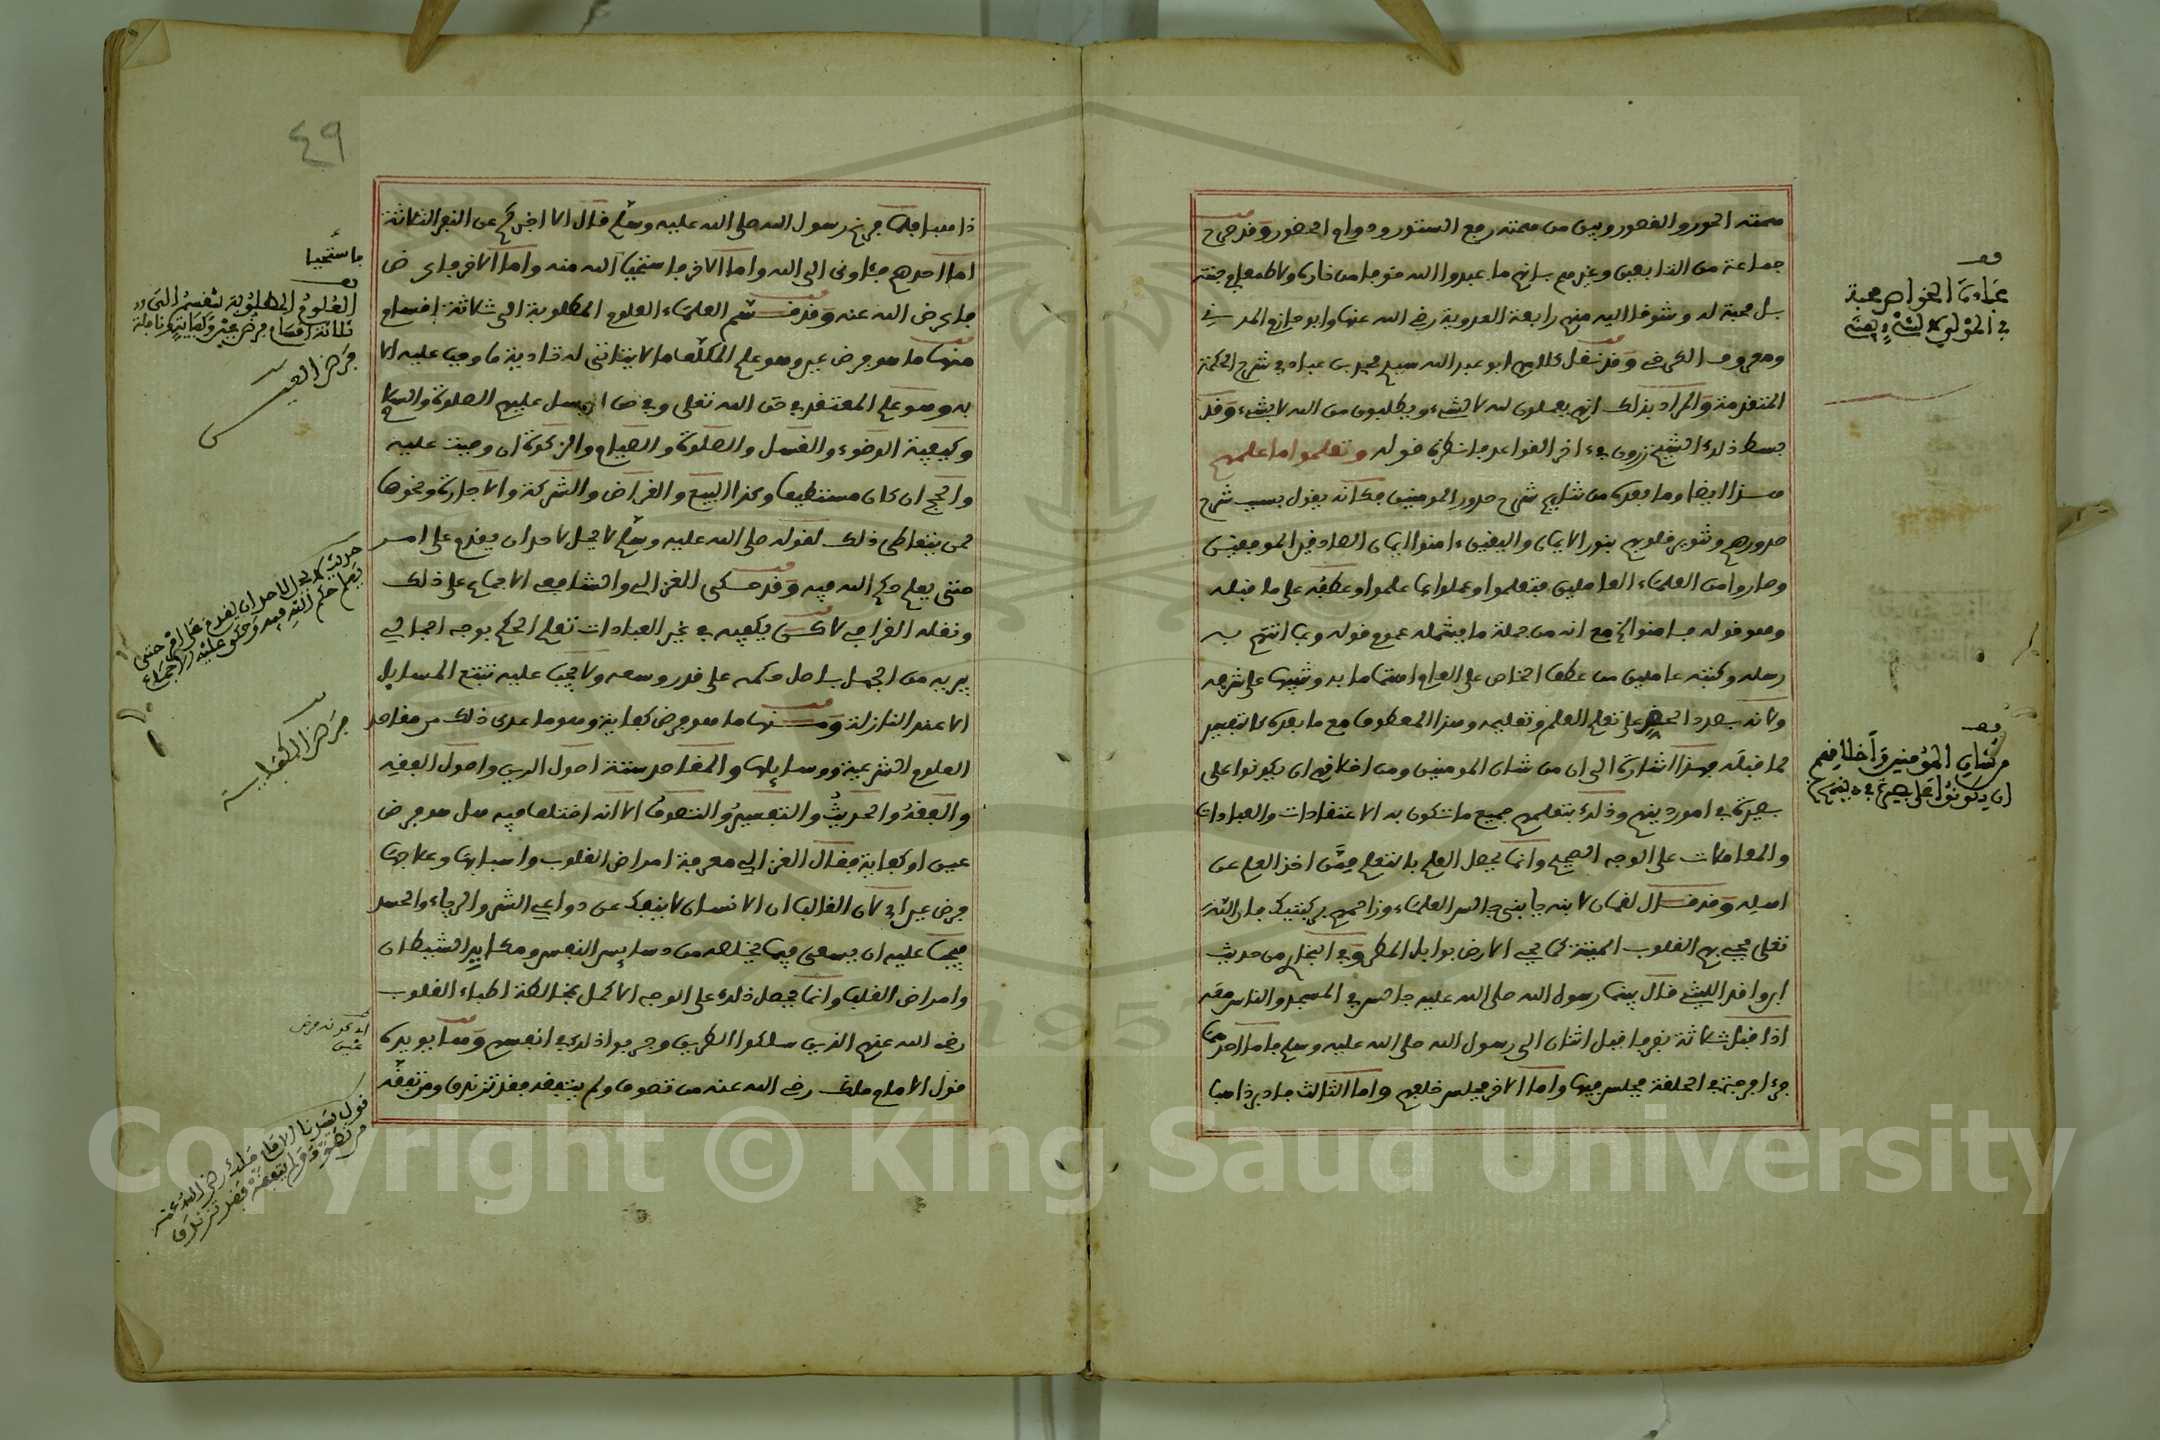 همته الحور والقصور وبين من همته رفع الستور ودوام الحضور وقد صرح
جماعة من التابعين وغيرهم بانهم ما عبدوا الله خوفا من ناره ولا طمعا في جنته
بل محبة له وشوقا اليه منهم رابعة العدوية رضي الله عنها وابو حازم المدني
ومعروف الكرخي وقد نقل كلامهم ابو عبد الله سيدي محمد بن عباد في شرح الحكمة
المتقدمة والمراد بذلك انهم يعملون لله لا لشيء ويطلبون من الله لا بشيء وقد
بسط ذلك الشيخ زروق في اخر القواعد فانظره قوله وتعلموا ما علمهم
هذا ايضا وما بعده من شان شرح صدور المومنين فكانه يقول بسبب شرح
صدورهم وتنوير قلوبهم بنور الايمان واليقين ءامنوا ايمان الصادقين الموفقين
وصاروا من العلماء العاملين فتعلموا وعملوا بما علموا وعطفه على ما قبله
وهو قوله فامنوا الخ مع انه من جملة ما يشمله عموم قوله وبما اتتهم به
رسله وكتبه عاملين من عطف الخاص على العام اهتماما به وتنبيها على شرفه
ولانه بصدد الحض على تعلم العلم وتعليمه وهذا المعطوف مع ما بعده كالتفسير
لما قبله فهذا اشارة الى ان من شان المومنين ومن اخلاقهم ان يكونوا على
بصيرة في امور دينهم وذلك بتعلمهم جميع ما تتكون به الاعتقادات والعبادات
والمعاملات على الوجه الصحيح وانما يحصل العلم بالتعلم ممن اخذ العلم عن
اهله وقد قال لقمان لابنه يا بني جالس العلماء وزاحمهم بركبتيك فان الله
تعلى يحيي بهم القلوب الميتة كما يحيي الارض بوابل المطر وفي البخاري من حديث
ابي واقد الليثي قال بينما رسول الله صلى الله عليه جالس في المسجد والناس معه
اذا اقبل ثلاثة نفر فاقبل اثنان الى رسول الله صلى الله عليه وسلم فاما احدهما
فرءا فرجة في الحلقة فجلس فيها واما الاخر فجلس خلفهم واما الثالث فادبر ذاهبا
عبادة الخواص محبة
في المولى لا لشيء
من شان المومنين واخلاقهم
ان يكونوا على بصيرة في دينهم
٤٩
ذاهبا فلما فرغ رسول الله صلى الله عليه وسلم قال الا اخبركم عن النفر الثلاثة
اما احدهم فـاوى الى الله واما الاخر فاستحيا فاستحيا الله منه واما الاخر فاعرض
فاعرض الله عنه وقد قسم العلماء العلوم المطلوبة الى ثلاثة اقسام
منها ما هو فرض عين وهو على المكلف ما لا يتاتى له تادية ما وجب عليه الا
به وهو علم المعتقد في حق الله تعلى وفي حق الرسل عليهم الصلوة والسلام
وكيفية الوضوء والغسل والصلوة والصيام والزكوة ان وجبت عليه
والحج ان كان مستطيعا وكذا البيع والقراض والشركة والاجارة ونحوها
لمن يتعاطى ذلك لقوله صلى الله عليه وسلم لا يحل لاحد ان يقدم على امر
حتى يعلم حكم الله فيه وقد حكى الغزالي والشافعي الاجماع على ذلك
ونقله القرافي لاكن يكفيه في غير العبادات تعلم الحكم بوجه اجمالي
يبريه من الجهل باصل حكمه على قدر وسعه ولا يجب عليه تتبع المسايل
الا عند النازلة ومنها ما هو فرض كفاية وهو ما عدى ذلك من مقاصد
العلوم الشرعية ووسايلها والمقاصد ستة اصول الدين واصول الفقه
والفقه والحديث والتفسير والتصوف الا انه اختلف فيه هل هو فرض
عين او كفاية فقال الغزالي معرفة امراض القلوب واسبابها وعلاجها
فرض عين اي لان الغالب ان الانسان لا ينفك عن دواعي الشر والرياء والحسد
فيجب عليه ان يسعى فيما يخلصه من دسايس النفس ومكايد الشيطان
وامراض القلب وانما يحصل ذلك على الوجه الاكمل بمخالطة اطباء القلوب
رضي الله عنهم الذين سلكوا الطريق وجربوا ذلك في انفسهم وهذا يويده
قول الامام ملك رضي الله عنه من تصوف ولم يتفقه فقد تزندق ومن تفقه
فاستحيا
العلوم المطلوبة تنقسم الى
ثلاثة اقسام فرض عين وكفاية ونافلة
فرض العين
حديث لا يحل لاحد ان يقدم على امر حتى
يعلم حكم الله فيه وحكى عليه الاجماع
فرض الكفاية
اي كونه فرض
عين
قول سيدنا الامام ملك رضي الله عنه
من تصوف ولم يتفقه فقد تزندق
Copyright © King Saud University
1957